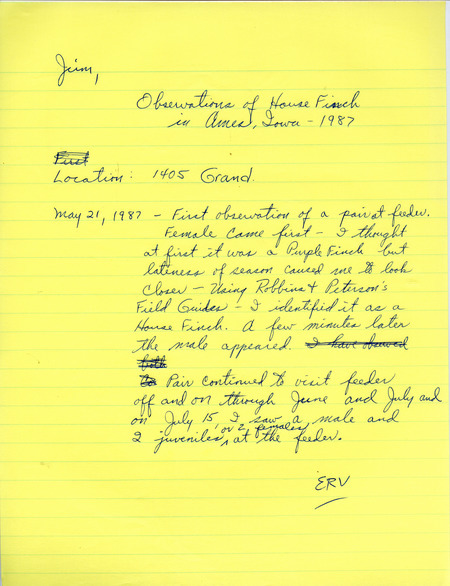 Jim,
Observations of House Finch
in Ames, Iowa - 1987
First
Location: 1405 Grand.
May 21, 1987 - First observation of a pair at feeder.
Female came first - I thought
at first it was a Purple Finch but
lateness of season caused me to look
closer - Using Robbins & Peterson's
Field Guides - I identified it as a
House Finch. A few minutes later
the male appeared. I have observed
both
Pair continued to visit feeder
off and on through June and July and
on July 15, I saw a male and
2 juveniles, or 2 females, at the feeder.
ERV